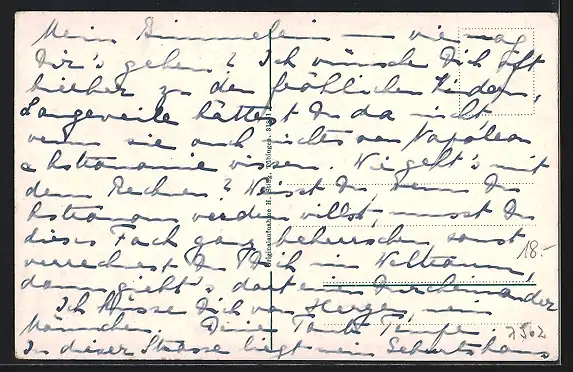 Mein Bimmelein — wie mag
Dir's gehen? Ich wünsche Dich oft
hieher zu den fröhlichen Kindern,
Langeweile hättest Du da nicht,
wenn sie auch nichts von Napoleon
& Astronomie wissen. Wie geht's mit
dem Rechnen? Weisst Du, wenn Du
Astronom werden willst, musst Du
dieses Fach ganz beherrschen, sonst
verrechnest Du Dich im Weltraum,
dann gibt's dort ein Durcheinander
18.-
Ich küsse Dich von Herzen, mein
Männchen. Deine Tante
7502
In dieser Strasse liegt mein Geburtshaus
Originalaufnahme H. Tübingen.